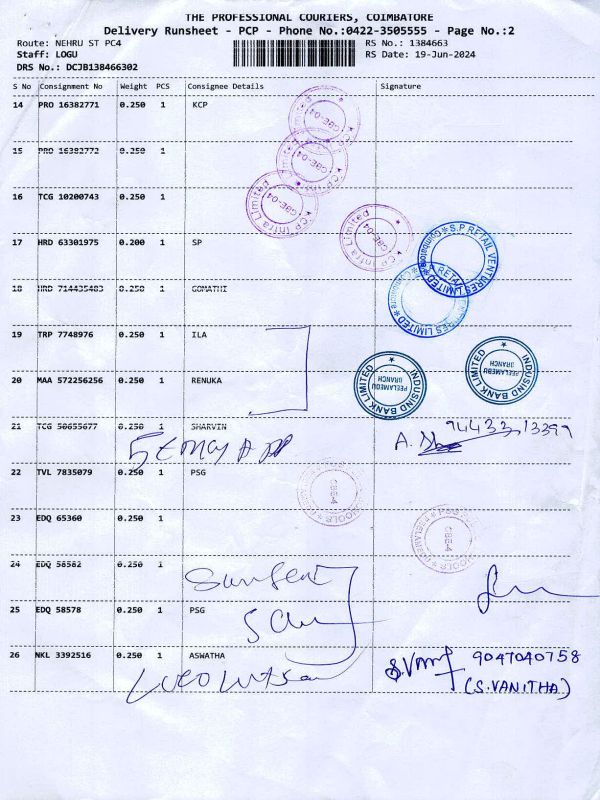 THE PROFESSIONAL COURIERS, COIMBATORE
Delivery Runsheet - PCP - Phone No.:0422-3505555 - Page No.:2
Route: NEHRU ST PC4 RS No.: 1384663
Staff: LOGU RS Date: 19-Jun-2024
DRS No.: DCJB138466302
S No Consignment No Weight PCS Consignee Details Signature
14 PRO 16382771 0.250 1 KCP
15 PRO 16382772 0.250 1
16 TCG 10200743 0.250 1
CBE-04
CBE-04
CP Infra Limited CBE-04
CP Infra Limited CBE-04
17 HRD 63301975 0.200 1 SP
S.P RETAIL VENTURES LIMITED Coimbatore
RETAIL LIMITED Coimbatore
18 HRD 714435483 0.250 1 GOMATHI
19 TRP 7748976 0.250 1 ILA
20 MAA 572256256 0.250 1 RENUKA
INDUSIND BANK LIMITED PEELAMEDU BRANCH
INDUSIND BANK LIMITED PEELAMEDU BRANCH
21 TCG 50655677 0.250 1 SHARVIN
94433 13399
22 TVL 7835079 0.250 1 PSG
23 EDQ 65360 0.250 1
24 EDQ 58582 0.250 1
25 EDQ 58578 0.250 1 PSG
26 NKL 3392516 0.250 1 ASWATHA
9047040758
(S.VANITHA)